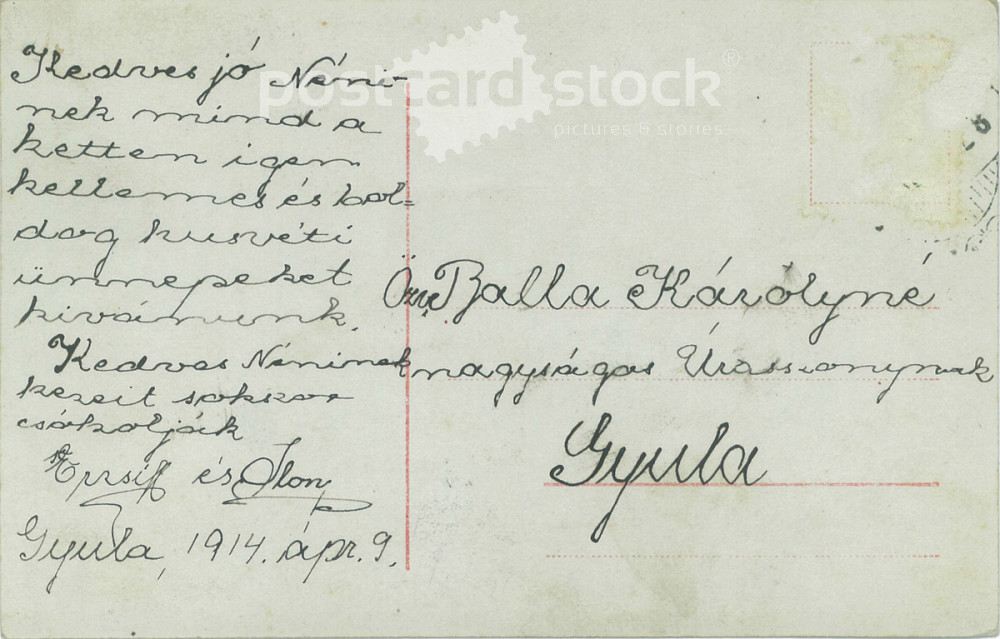 Kedves jó Néni-
nek mind a
ketten igen
kellemes és bol=
dog husvéti
ünnepeket
kivánunk.
Kedves Néninek
kezeit sokszor
csókolják
és Ilon
Gyula, 1914. ápr. 9.
postcard stock®
pictures & stories
Özv. Balla Károlyné
nagyságos Úrasszonynak
Gyula